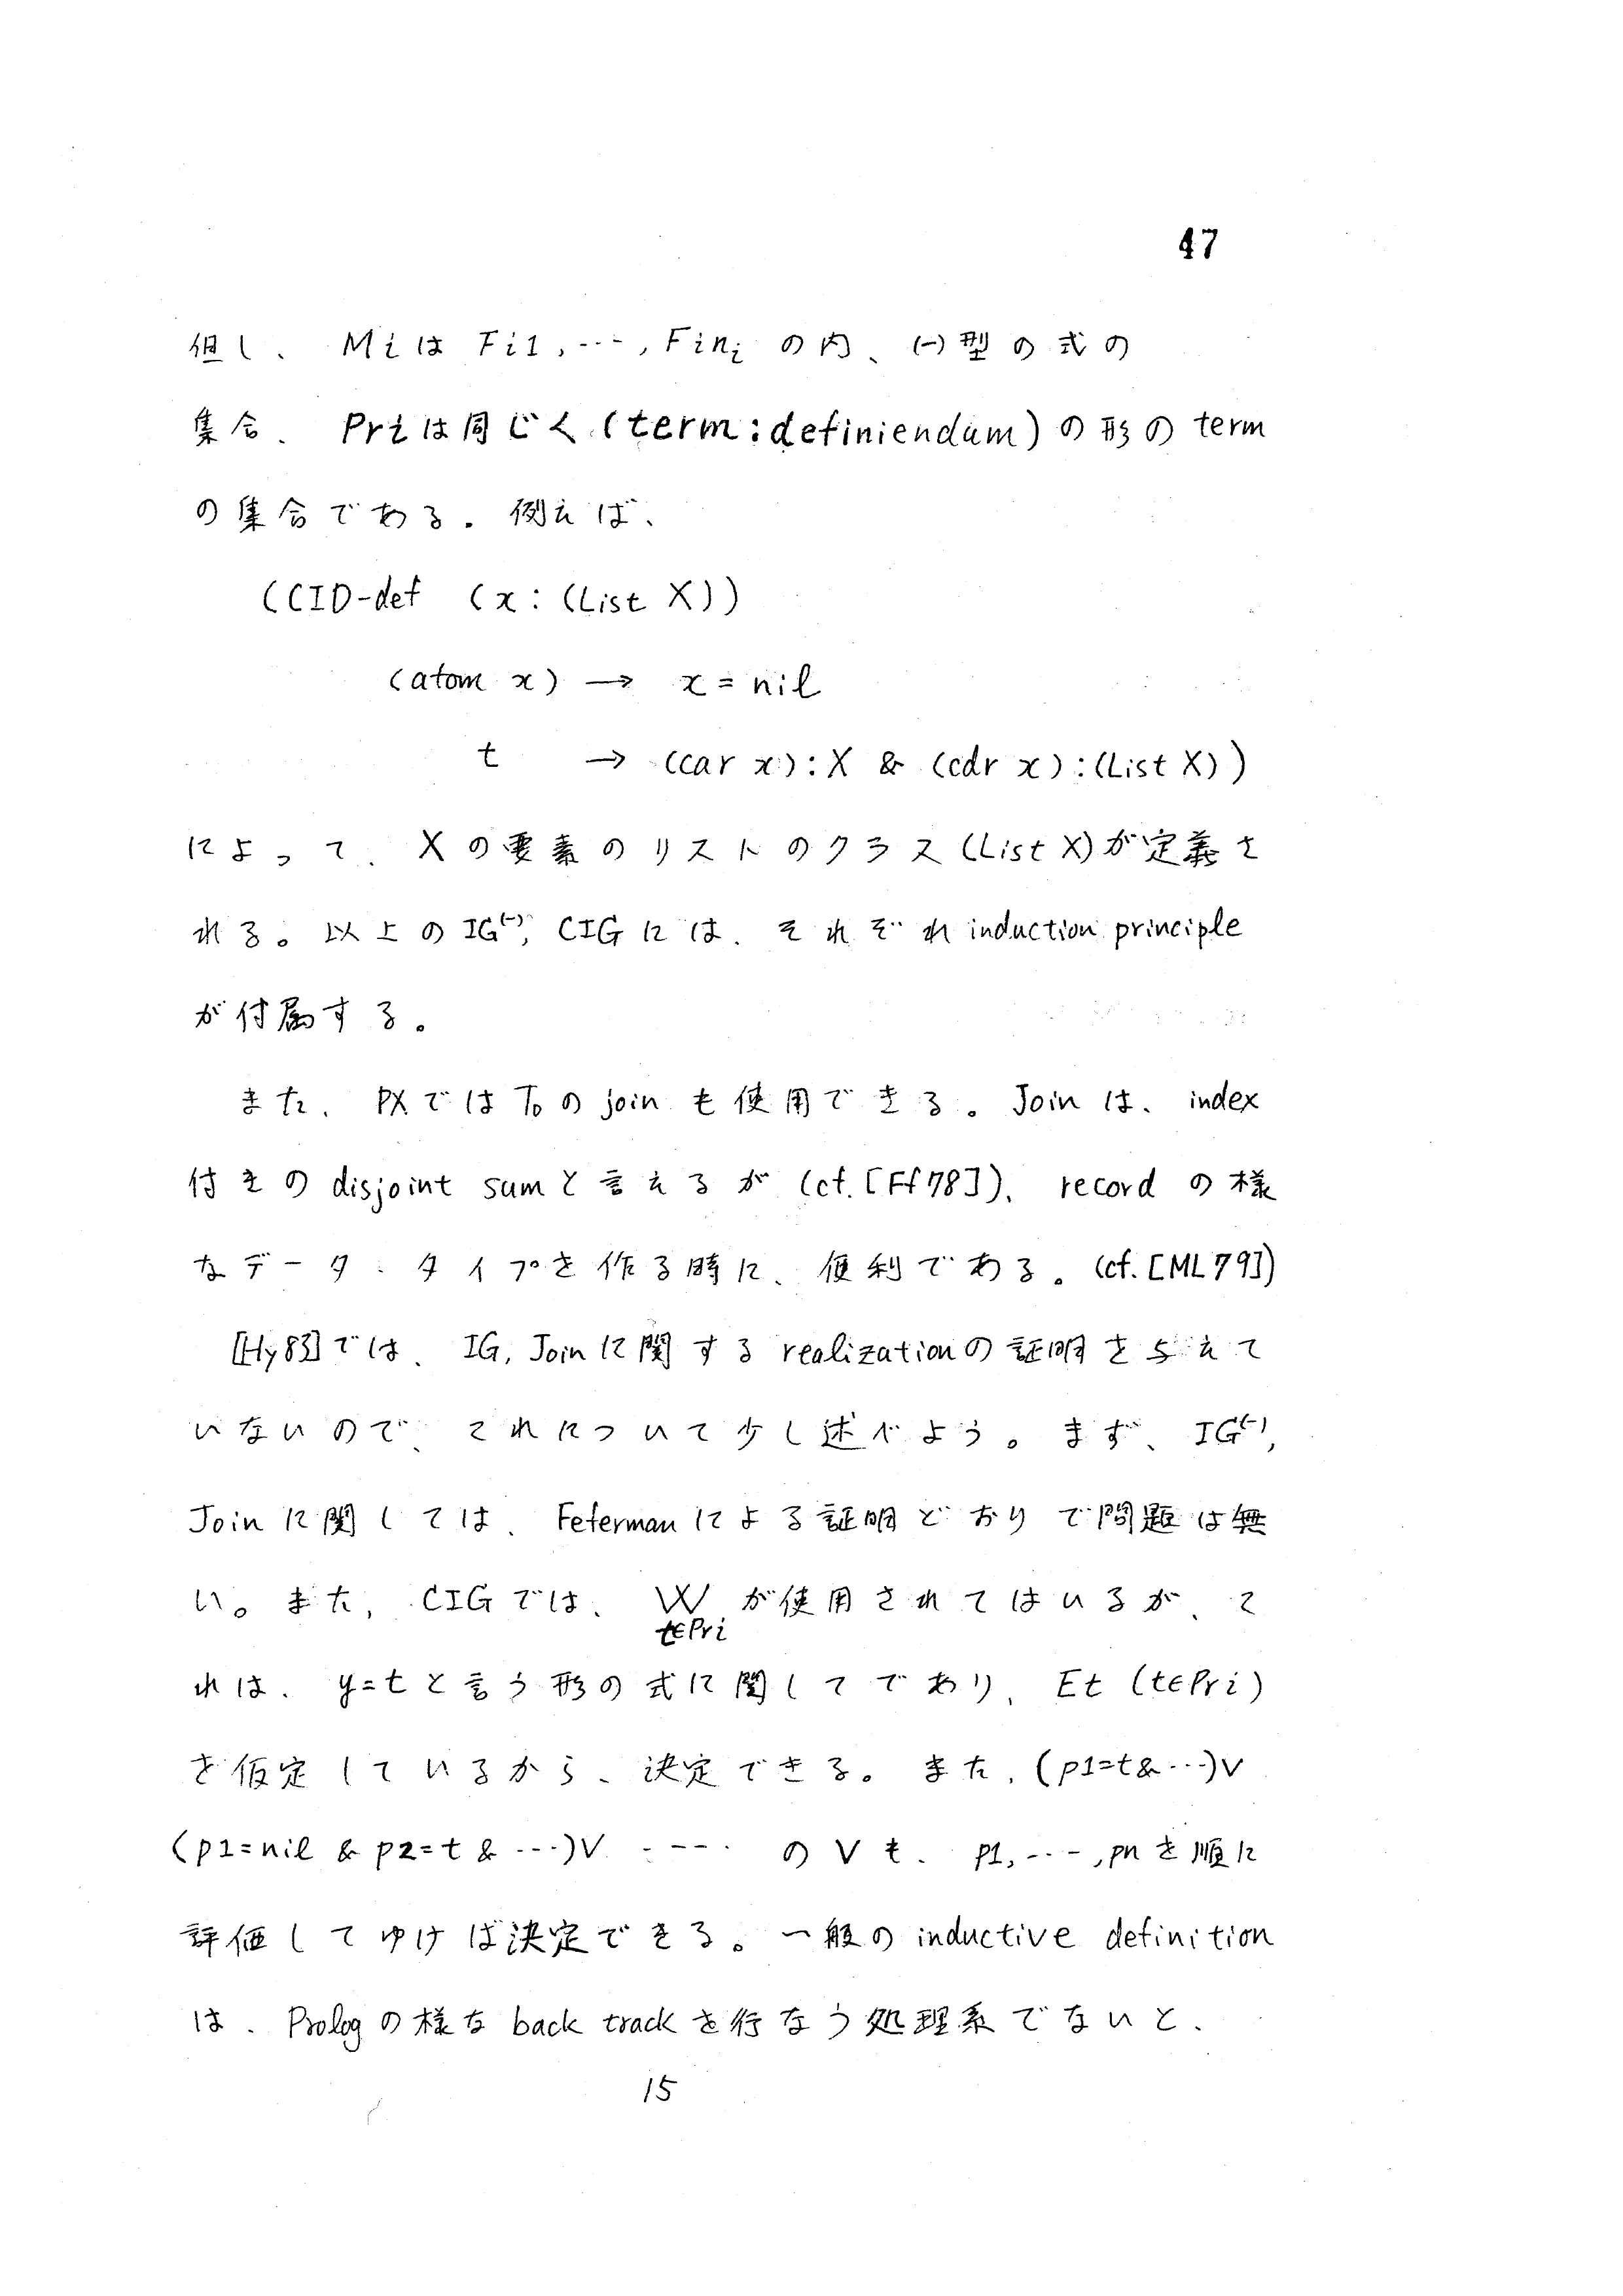 47
但し、 Mi は Fi1, ---, Fin_i の内、(-)型の式の
集合、 Pri は同じく (term : definiendum) の形の term
の集合である。例えば、
(CID-def (x : (List X))
(atom x) → x = nil
t → (car x) : X & (cdr x) : (List X))
によって、 X の要素のリストのクラス (List X) が定義さ
れる。以上の IG^(-), CIG には、それぞれ induction principle
が付属する。
また、 PX では T₀ の join も使用できる。 Join は、 index
付きの disjoint sum と言えるが (cf. [Ff78])、 record の様
なデータ・タイプを作る時に、便利である。(cf. [ML79])
[Hy83] では、 IG, Join に関する realization の証明を与えて
いないので、それについて少し述べよう。まず、 IG^(-),
Join に関しては、 Feferman による証明どおりで問題は無
い。また, CIG では、 W が使用されてはいるが、こ
t∈Pri
れは、 y=t と言う形の式に関してであり、 Et (t∈Pri)
を仮定しているから、決定できる。また, (p1=t & ---)∨
(p1=nil & p2=t & ---)∨ ---- の ∨ も、 p1, ---, pn を順に
評価してゆけば決定できる。一般の inductive definition
は、 Prolog の様な back track を行なう処理系でないと、
15